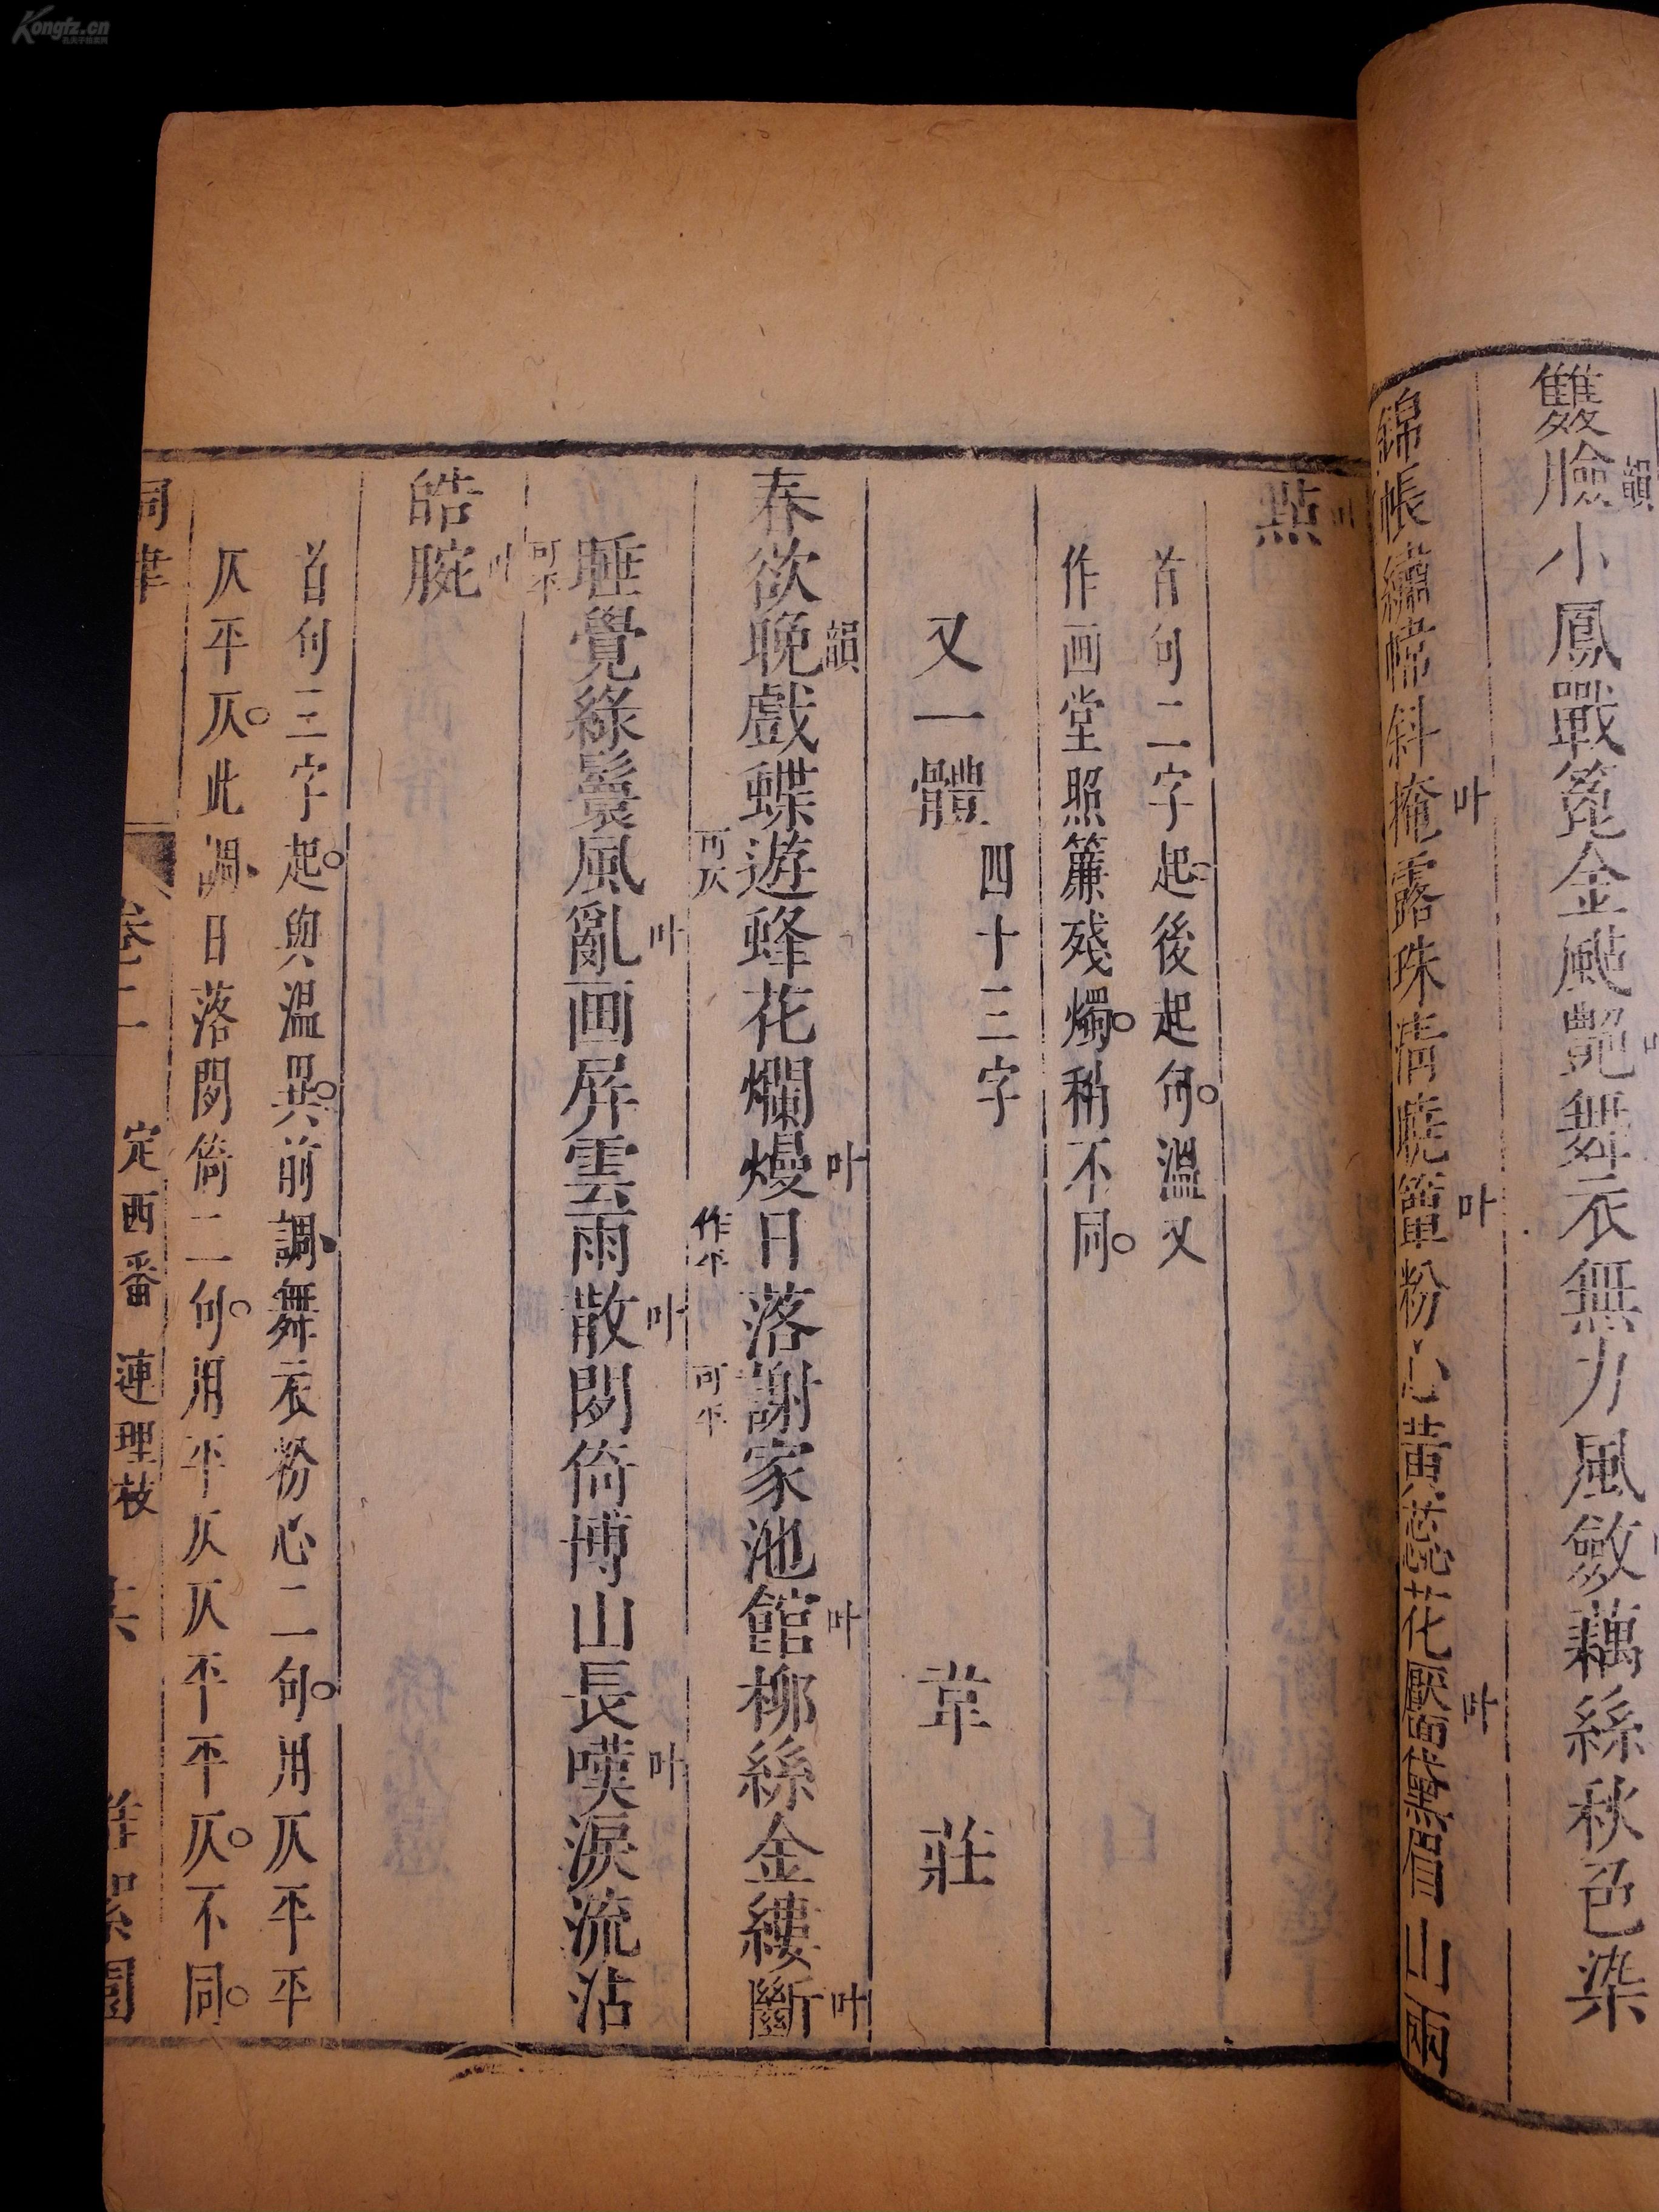 雙臉小鳳戰篦金颭艷舞衣無力風斂藕絲秋色染
韻
錦帳繡幃斜掩露珠清曉簟粉心黃蕊花靨黛眉山兩
叶
叶
叶
點
首句二字起後起句溫又
作画堂照簾殘燭稍不同
又一體 四十三字 韋莊
春欲晚戲蝶遊蜂花爛熳日落謝家池館柳絲金縷斷
韻
叶
叶
叶
可仄
作平
可平
睡覺綠鬟風亂画屏雲雨散閒倚博山長嘆淚流沾
叶
叶
叶
可平
皓腕
叶
首句三字起與溫異前調舞衣粉心二句用仄平平
仄平仄此調日落閒倚二句用平仄仄平平仄不同
詞律 卷二 定西番 連理枝
Kongfz.cn
孔夫子旧书网